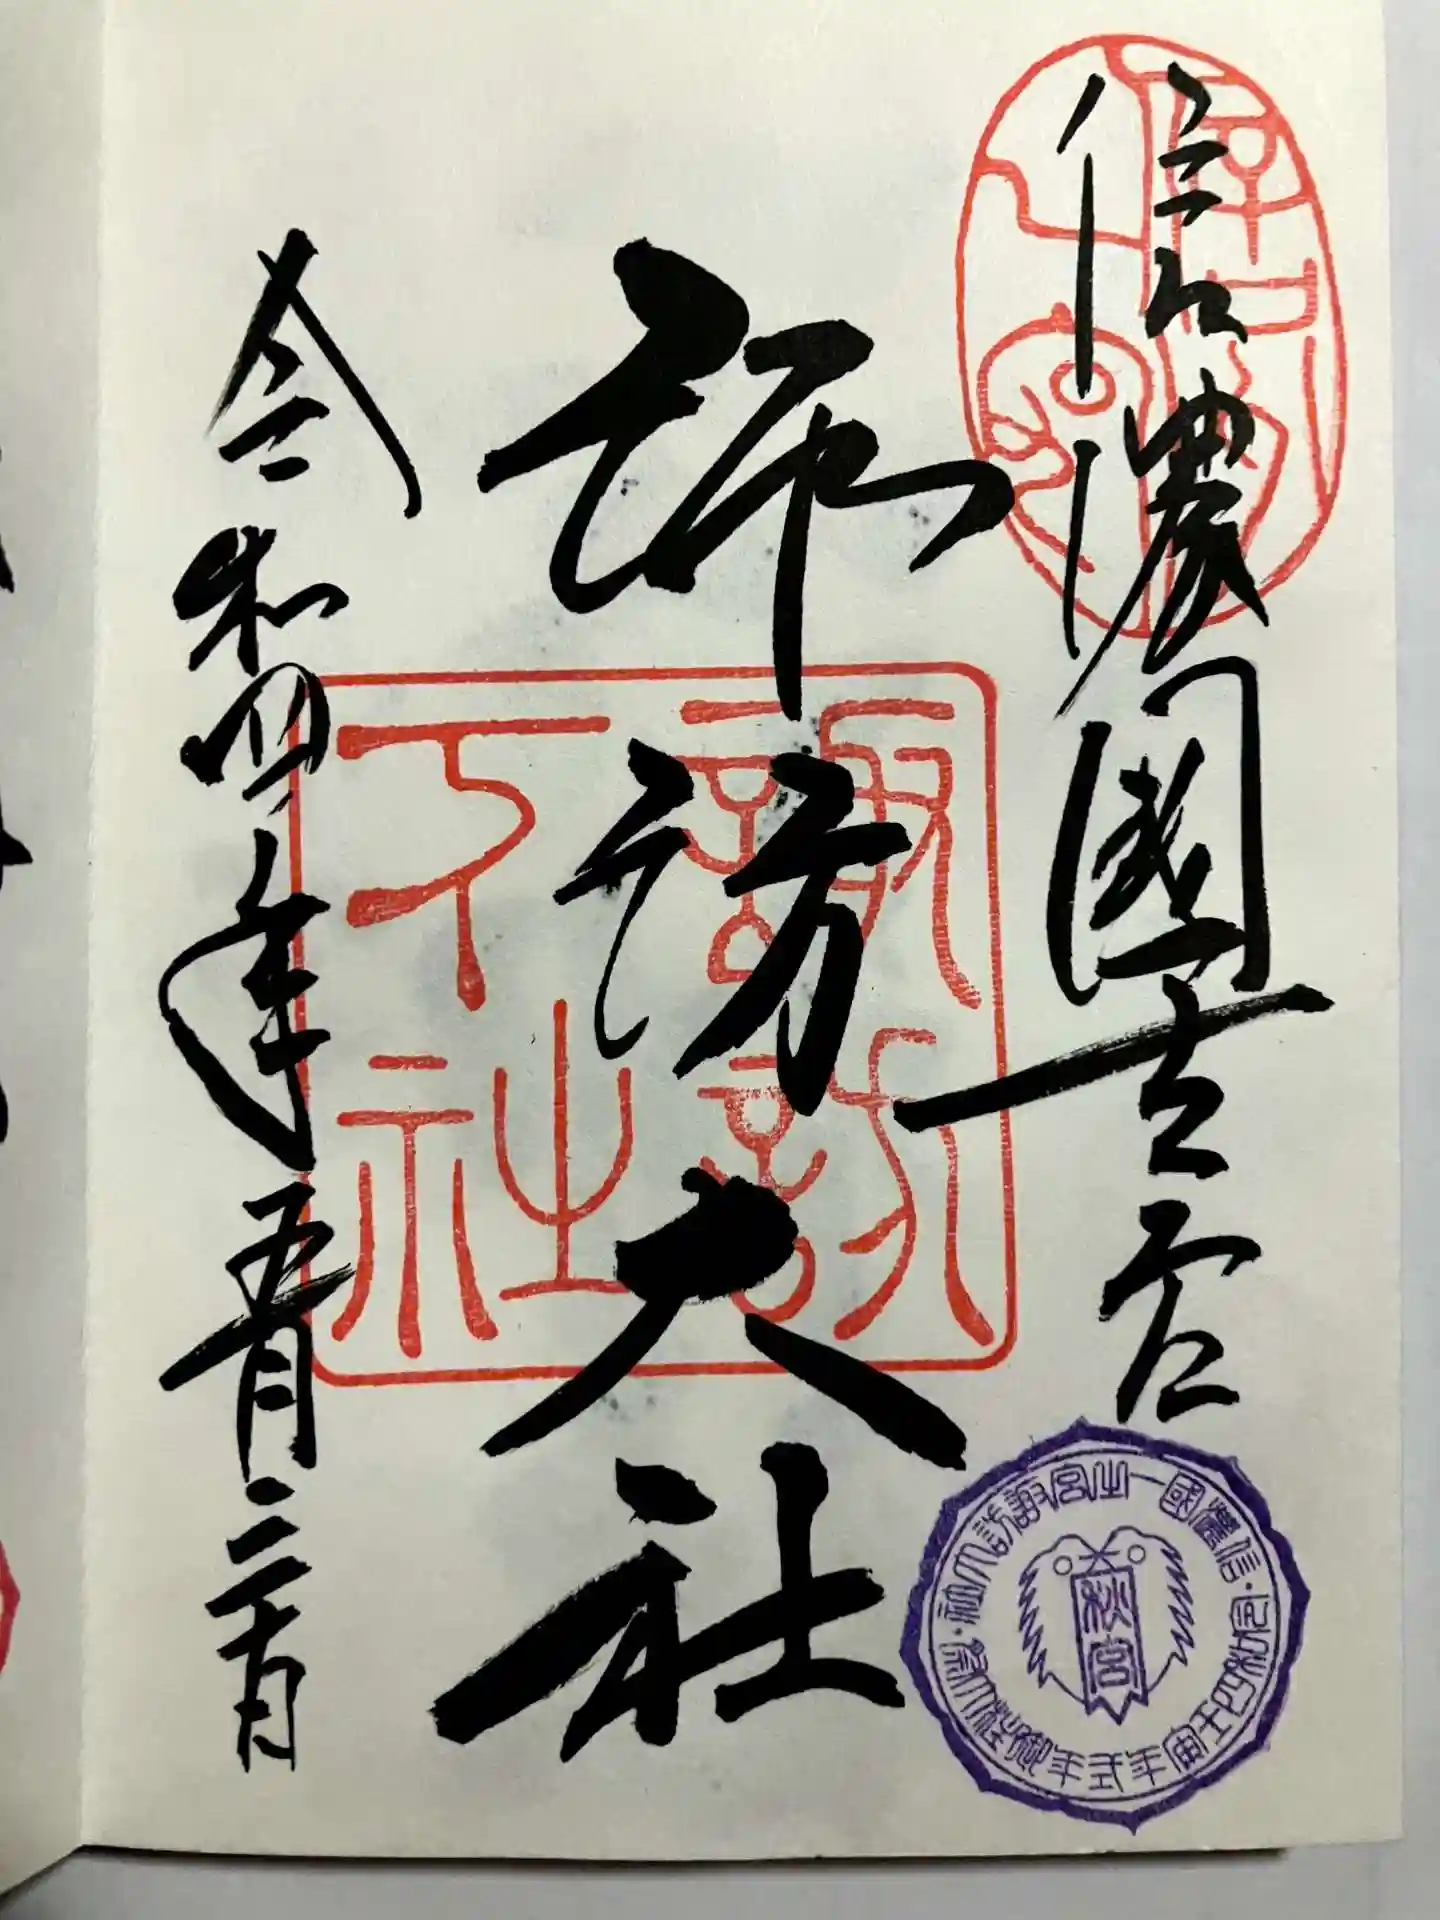 信濃國一之宮
諏訪大社
令和四年五月二十日
諏訪
下社
信濃國一之宮諏訪大社・令和四壬寅年式年御柱大祭・
秋宮